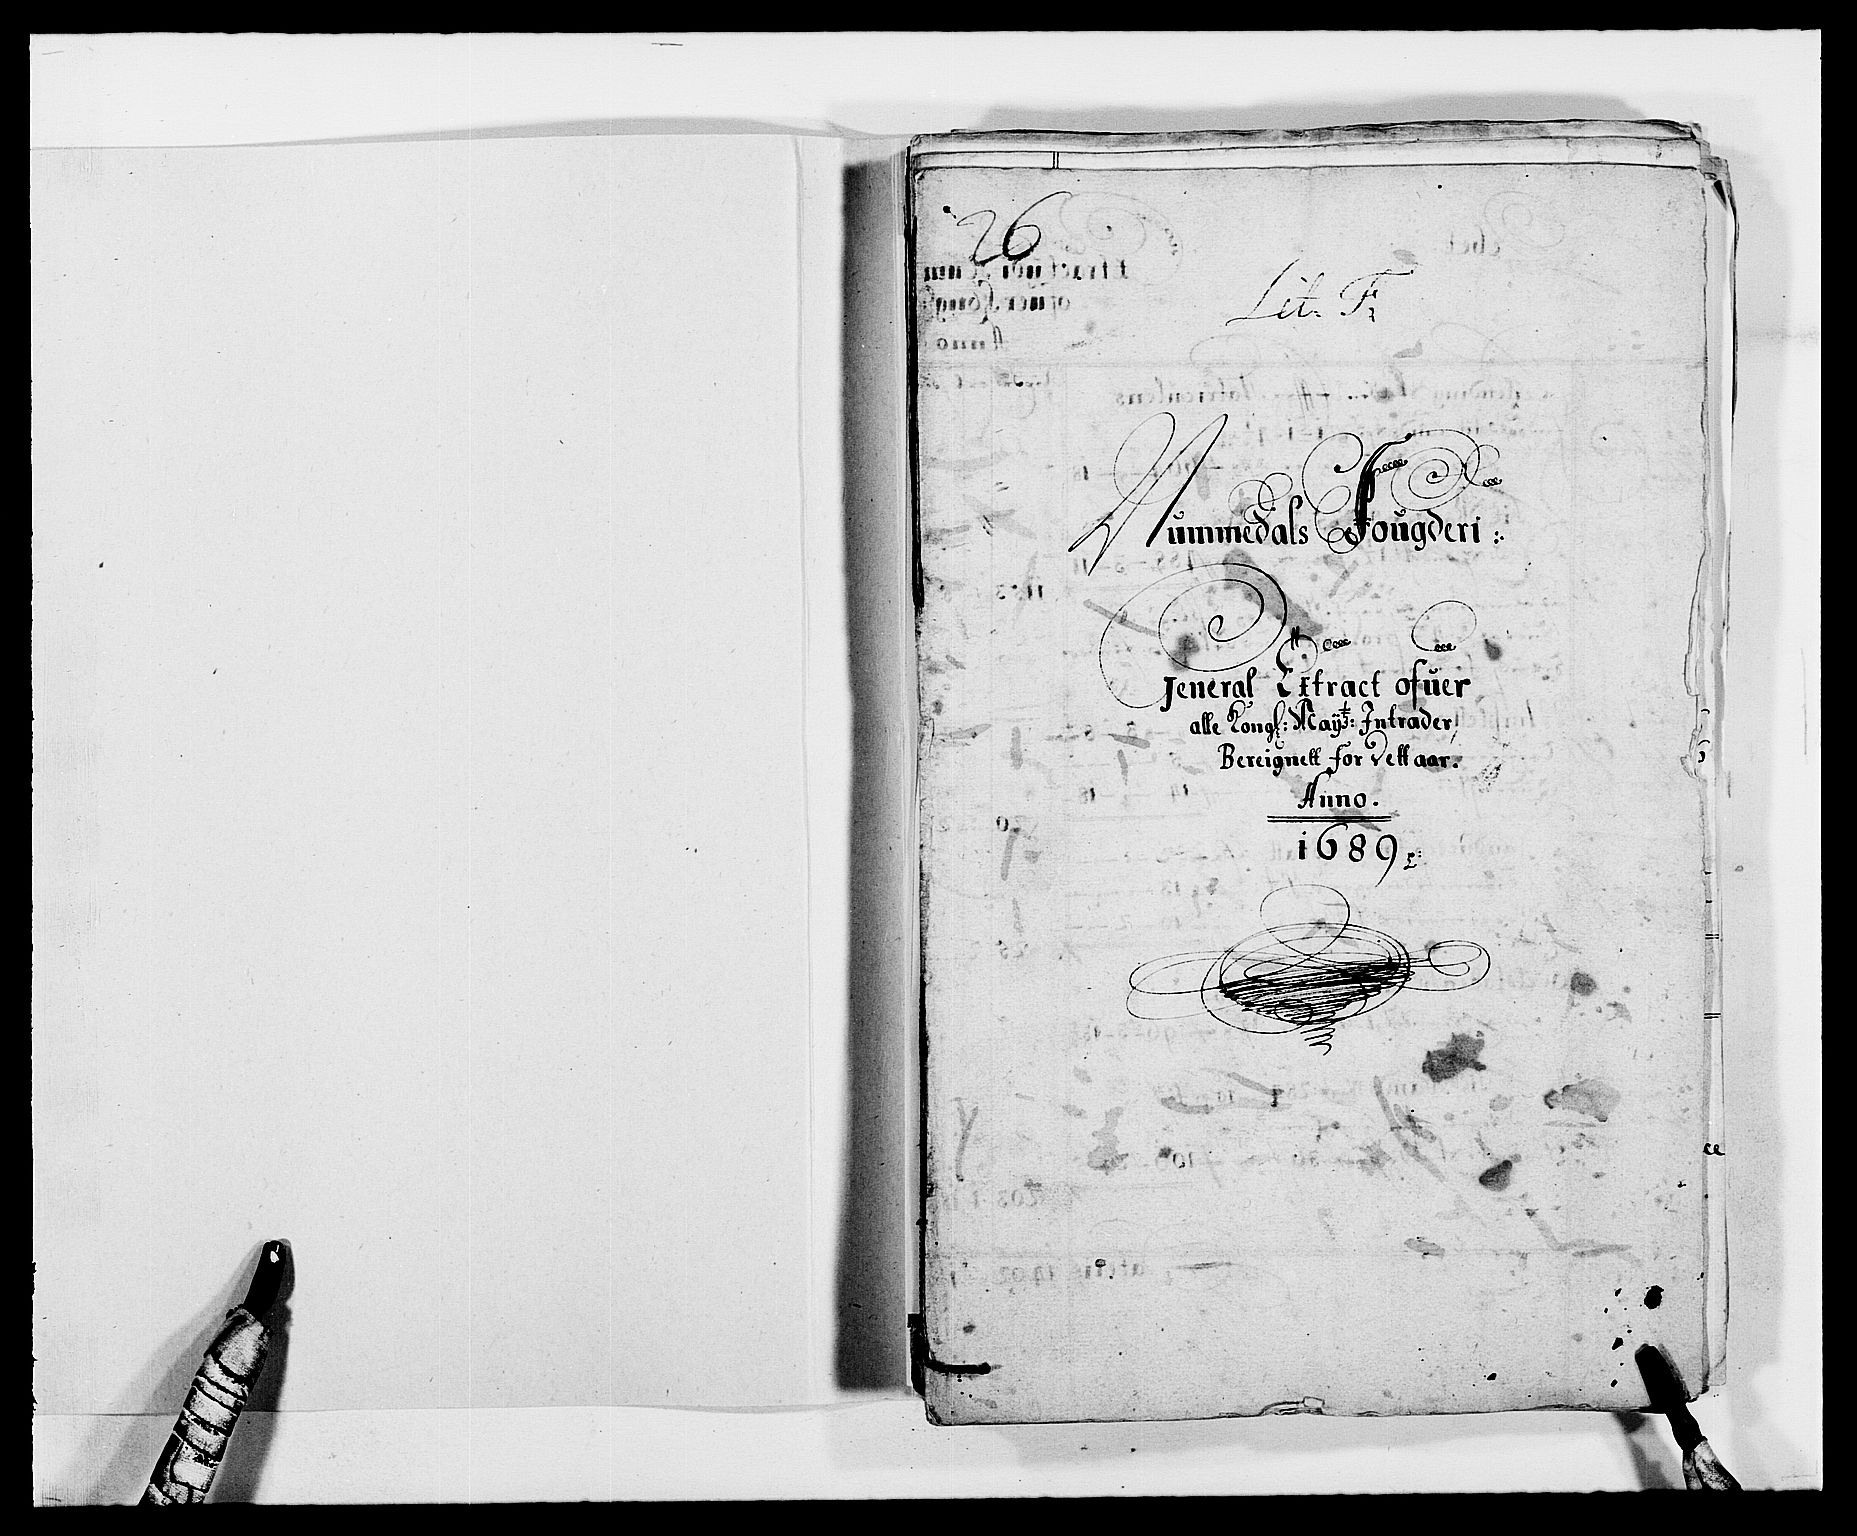 26
Lit. F.
Nummedals Fougderi:
General Extract ofuer
alle Kongl: Mayts: Intrader
Bereignett for dett aar.
Anno.
1689